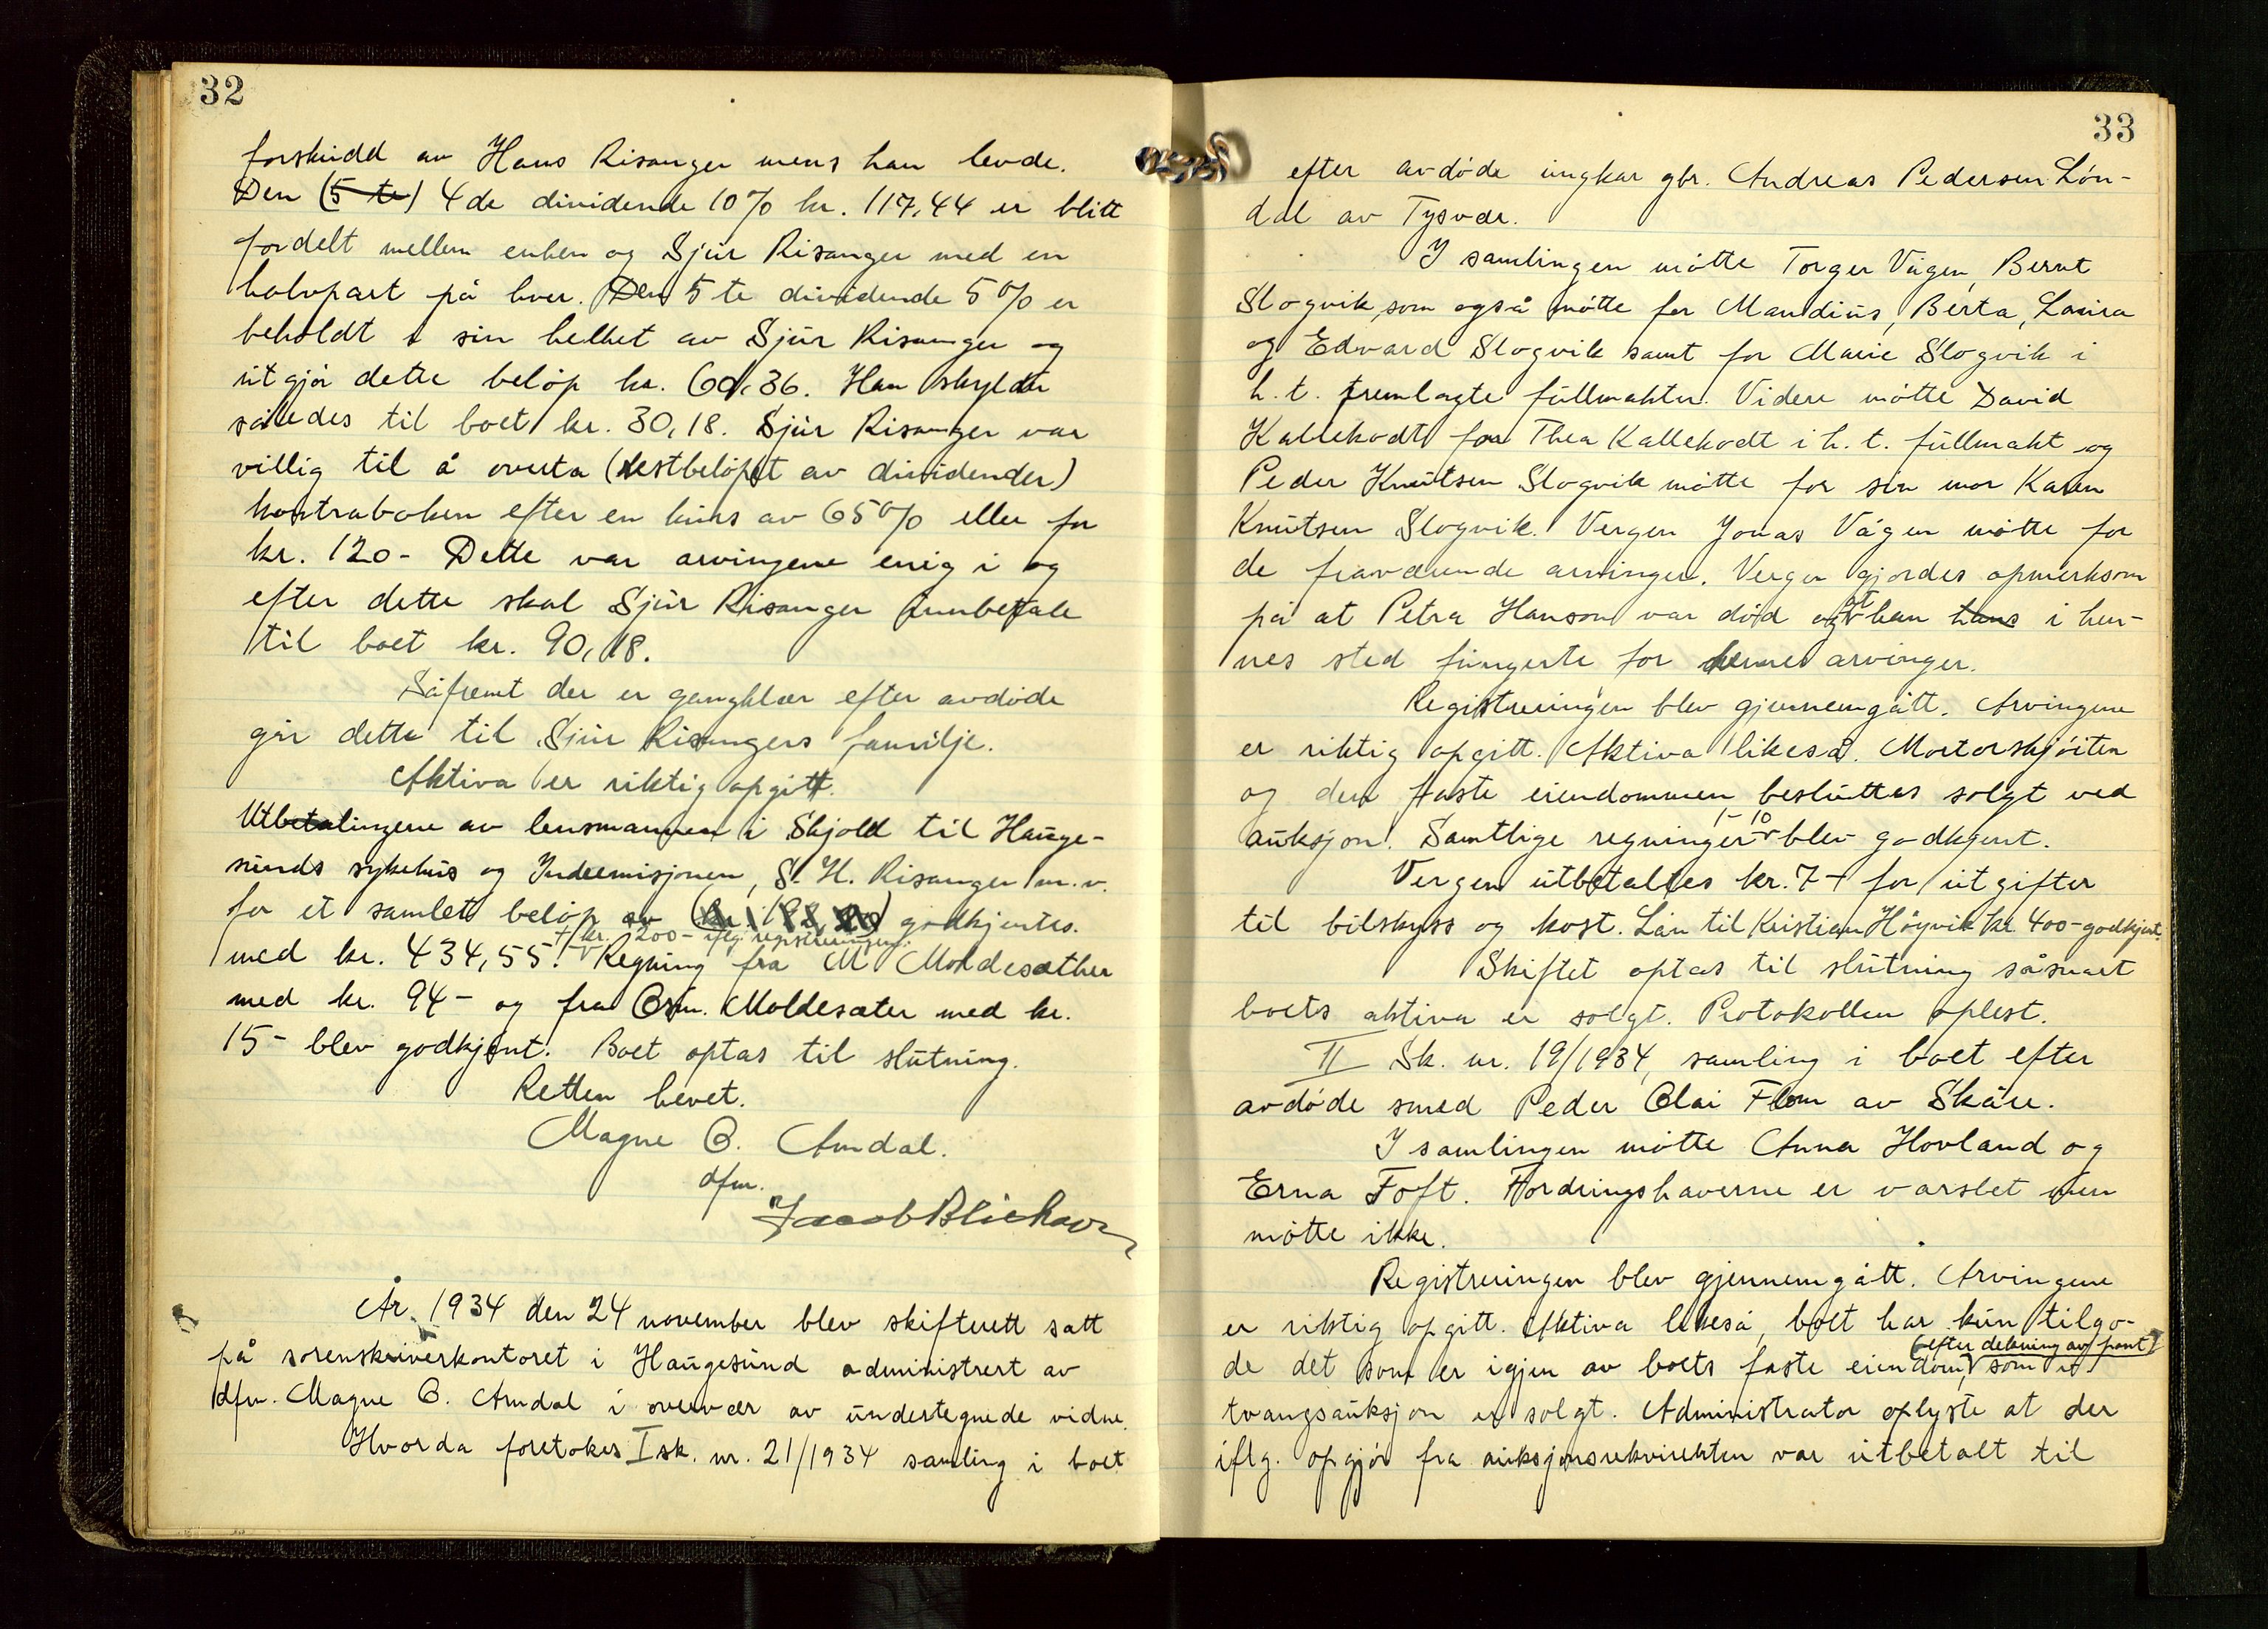 32
forskudd av Hans Risanger mens han levde.
Den (5 te) 4de dividende 10% kr. 117,44 er blitt
fordelt mellem enken og Sjur Risanger med en
halvpart på hver. Den 5te dividende 5% er
beholdt i sin helhet av Sjur Risanger og
utgjör dette belöp kr. 60,36. Han skylder
således til boet kr. 30,18. Sjur Risanger var
villig til å overta (restbelöpet av dividender)
kontraboken efter en kurs av 65% eller for
kr. 120- Dette var arvingene enig i og
efter dette skal Sjur Risanger innbetale
til boet kr. 90,18.
Såfremt der er gangklær efter avdöde
går dette til Sjur Risangers familje.
Aktiva er riktig opgitt.
Utbetalingene av lensmannen i Skjold til Hauge-
sunds sykehus og Indremisjonen, S. H. Risanger m.v.
for et samlet belöp av godkjentes.
+ kr. 200- iflg. registreringen.
med kr. 434,55. Regning fra M Moldesæther
med kr. 94- og fra Osm. Moldesæter med kr.
15- blev godkjent. Boet optas til slutning.
Retten hevet.
Magne O. Amdal.
dfm.
Jacob Blichavn
År 1934 den 24 november blev skifterett satt
på sorenskriverkontoret i Haugesund administrert av
dfm. Magne O. Amdal i overvær av undertegnede vidne.
Hvorda foretokes I sk. nr. 21/1934 samling i boet
33
efter avdöde ungkar gbr. Andreas Pedersen Lön-
dal av Tysvær.
I samlingen mötte Torger Vågen, Bernt
Slogvik, som også mötte for Mandius, Berta, Laura
og Edvard Slogvik samt for Marie Slogvik i
h. t. fremlagte fullmakter. Videre mötte David
Kallekodt for Thea Kallekodt i h. t. fullmakt og
Peder Knutsen Slogvik mötte for sin mor Karen
Knutsen Slogvik. Vergen Jonas Vågen mötte for
de fraværende arvinger. Vergen gjordes opmerksom
på at Petra Hanson var död og at han hans i hen-
nes sted fungerte for hennes arvinger.
Registreringen blev gjennemgått. Arvingene
er riktig opgitt. Aktiva likeså. Mortorskjöiten
og den faste eiendommen besluttes solgt ved
auksjon. Samtlige regninger 1-10 blev godkjent.
Vergen utbetaltes kr. 7- for utgifter
til bilskyss og kost. Lån til Kristian Högvik kr. 400- godkjent.
Skiftet optas til slutning såsnart
boets aktiva er solgt. Protokollen oplest.
II Sk. nr. 19/1934, samling i boet efter
avdöde smed Peder Olai Flom av Skåre.
I samlingen mötte Anna Hovland og
Erna Toft. Fordringshaverne er varslet men
mötte ikke.
Registreringen blev gjennemgått. Arvingene
er riktig opgitt. Aktiva likeså, boet har kun tilgo-
(efter dekning av pant)
de det som er igjen av boets faste eiendom, som er
tvangsauksjon er solgt. Administrator oplyste at der
iflg. opgjör fra auksjonsrekvirenten var utbetalt til